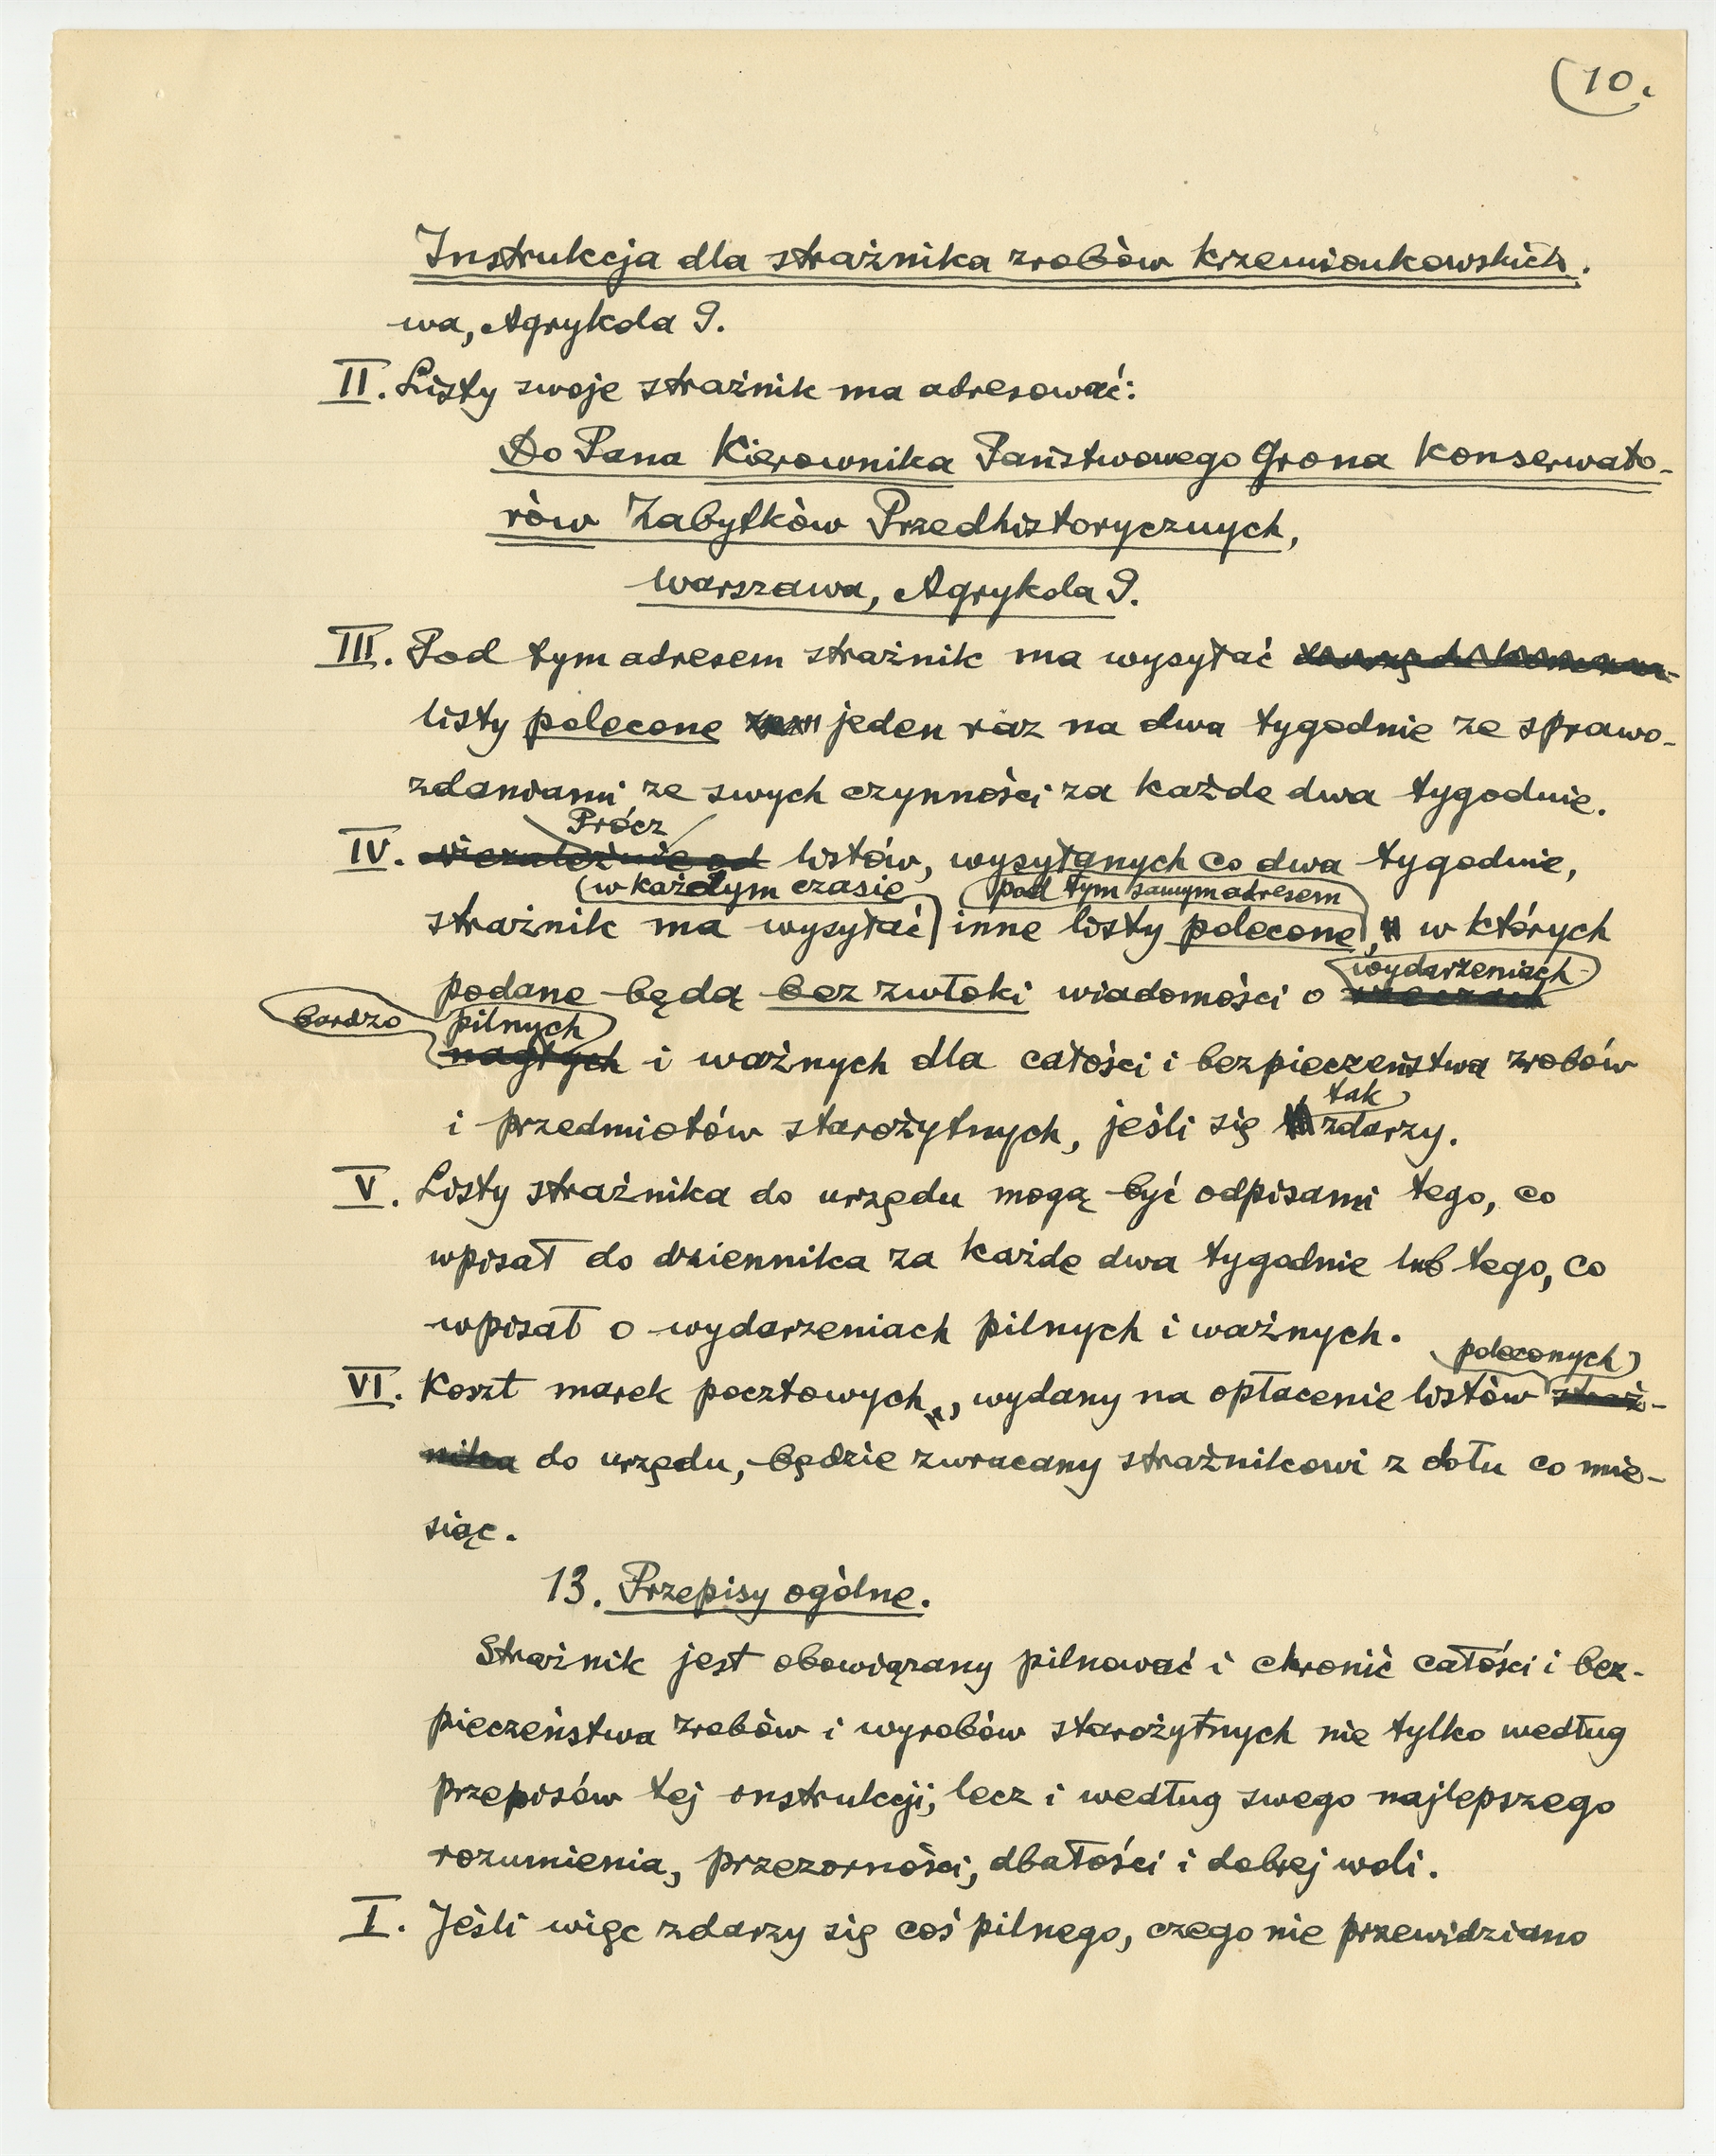 10.
Instrukcja dla strażnika zrobów krzemionkowskich.
wa, Agrykola 9.
II. Listy swoje strażnik ma adresować:
Do Pana Kierownika Państwowego Grona Konserwato-
rów Zabytków Przedhistorycznych,
Warszawa, Agrykola 9.
III. Pod tym adresem strażnik ma wysyłać
listy polecone jeden raz na dwa tygodnie ze sprawo-
zdaniami ze swych czynności za każde dwa tygodnie.
Prócz
IV. niezależnie od listów, wysyłanych co dwa tygodnie,
w każdym czasie pod tym samym adresem
strażnik ma wysyłać inne listy polecone, w których
wydarzeniach
podane będą bez zwłoki wiadomości o rzeczach
bardzo pilnych
nagłych i ważnych dla całości i bezpieczeństwa zrobów
tak
i przedmiotów starożytnych, jeśli się zdarzy.
V. Listy strażnika do urzędu mogą być odpisami tego, co
wpisał do dziennika za każde dwa tygodnie lub tego, co
wpisał o wydarzeniach pilnych i ważnych.
poleconych
VI. Koszt marek pocztowych, wydany na opłacenie listów straż-
nika do urzędu, będzie zwracany strażnikowi z dołu co mie-
siąc.
13. Przepisy ogólne.
Strażnik jest obowiązany pilnować i chronić całości i bez-
pieczeństwa zrobów i wyrobów starożytnych nie tylko według
przepisów tej instrukcji, lecz i według swego najlepszego
rozumienia, przezorności, dbałości i dobrej woli.
I. Jeśli więc zdarzy się coś pilnego, czego nie przewidziano